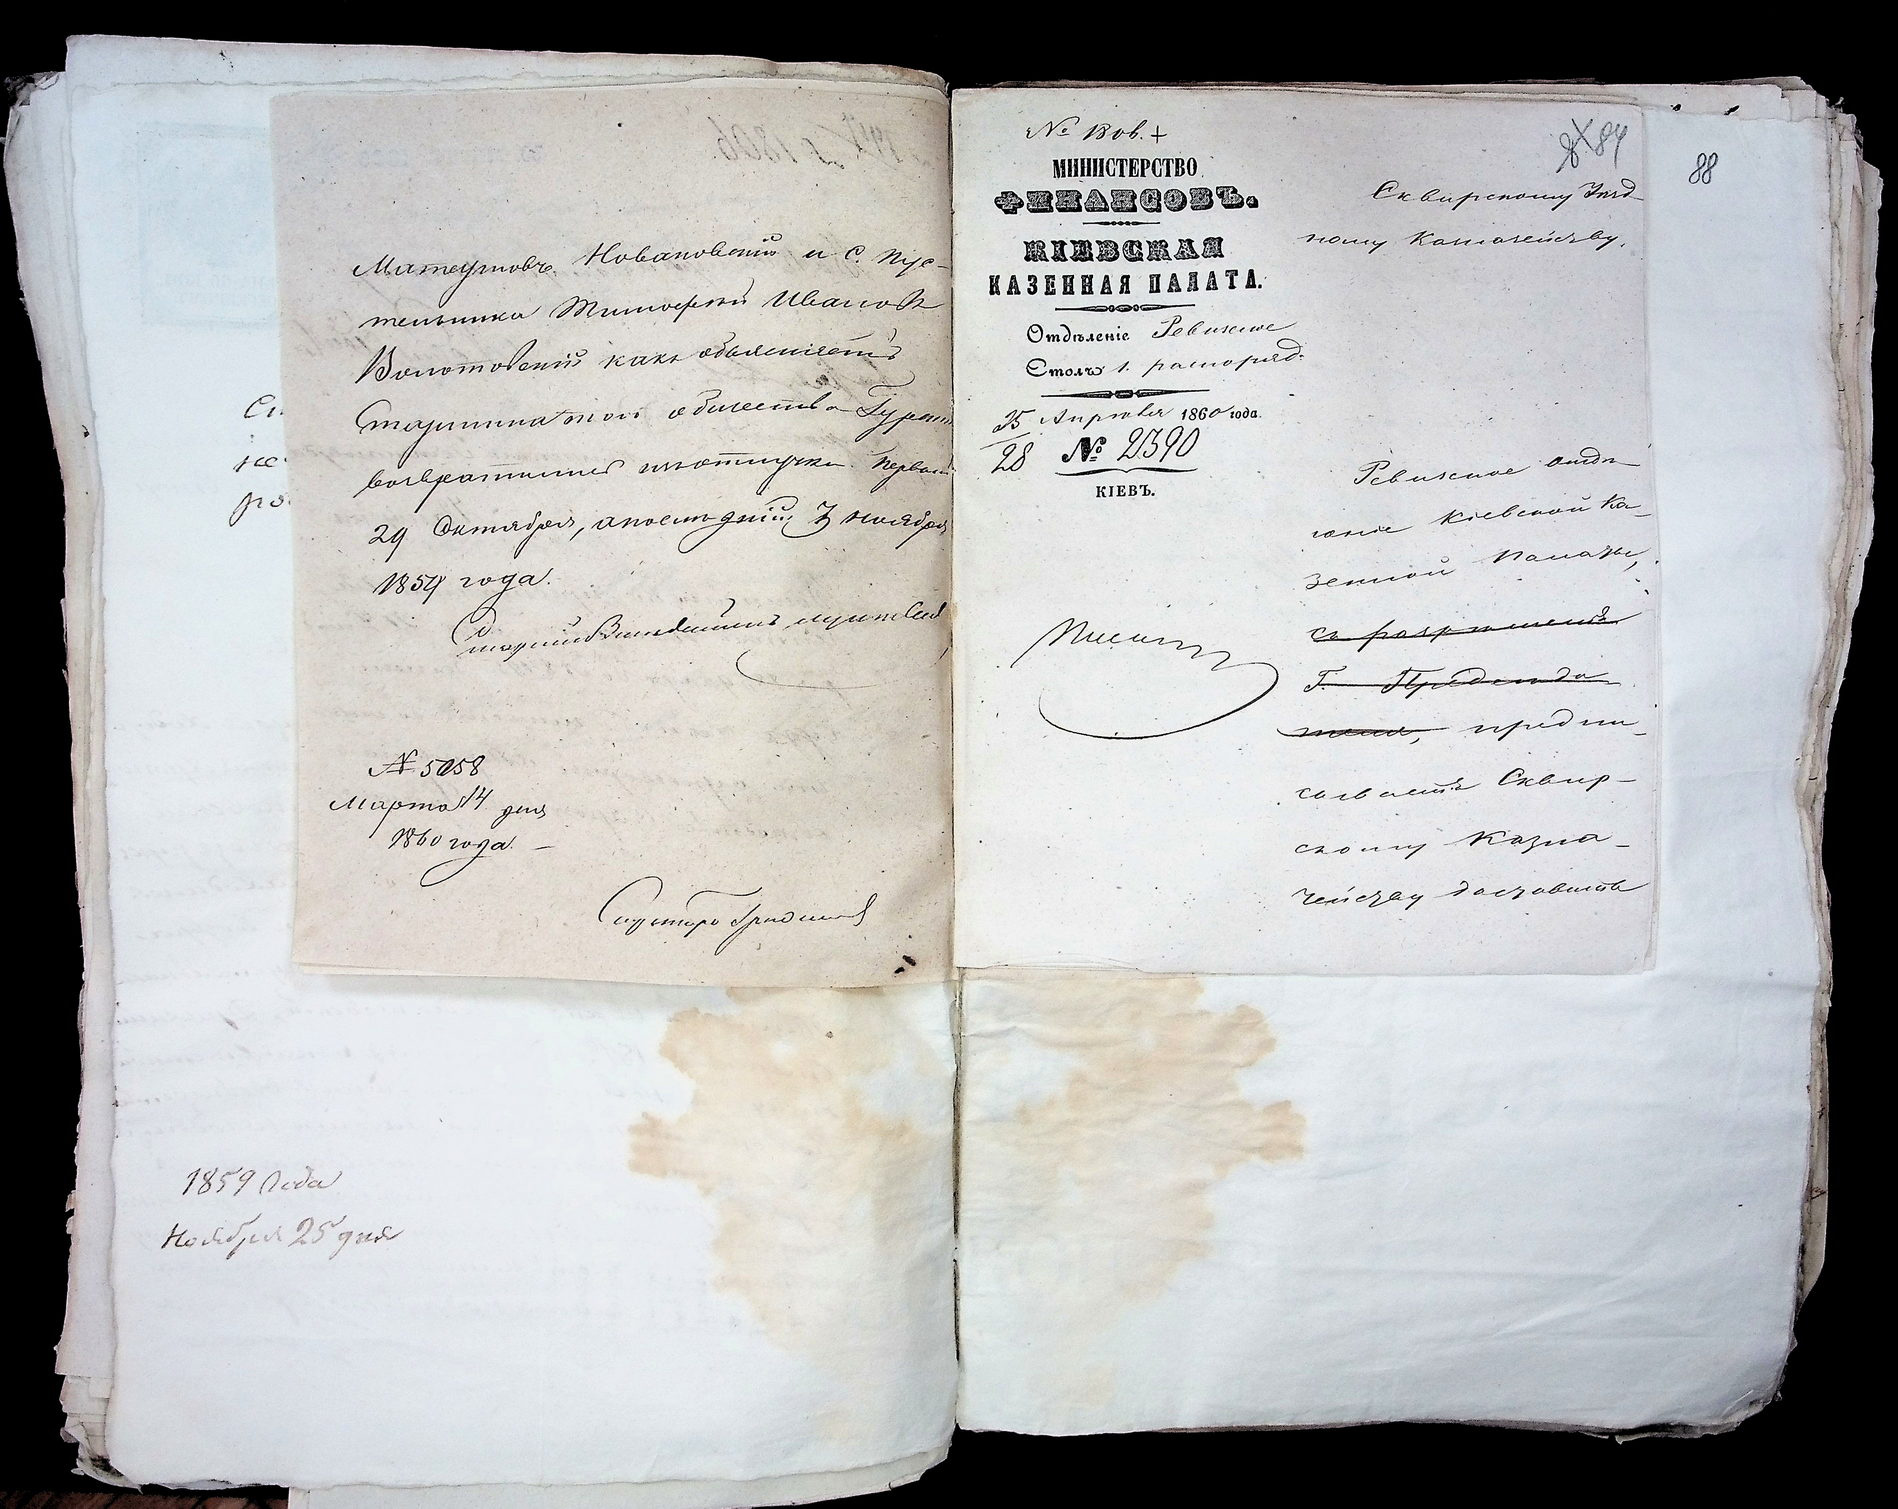 Матеушовъ Новаковскій и С. Пус-
тельника Тимофей Иванов
Волотовскій какъ объясняетъ
Старшина того общества Гурскій
возвратились изъ отлучки первый
29 Октября, а послѣдній 3 Ноября
1859 года.
№ 5058
Марта 14 дня
1860 года.
1859 Года
Ноября 25 дня
№ 1806. +
МИНИСТЕРСТВО
ФИНАНСОВЪ.
КІЕВСКАЯ
КАЗЕННАЯ ПАЛАТА.
Отдѣленіе Ревизское
Столъ 1. распоряд.
25 Апрѣля 1860 года.
28 № 2390
КІЕВЪ.
84
88
Сквирскому Уѣзд-
ному Казначейству.
Ревизское отдѣ-
леніе Кіевской Ка-
зенной Палаты,
съ разрѣшенія
Г. Предсѣда
теля, предпи-
сываетъ Сквир-
скому Казна-
чейству доставить